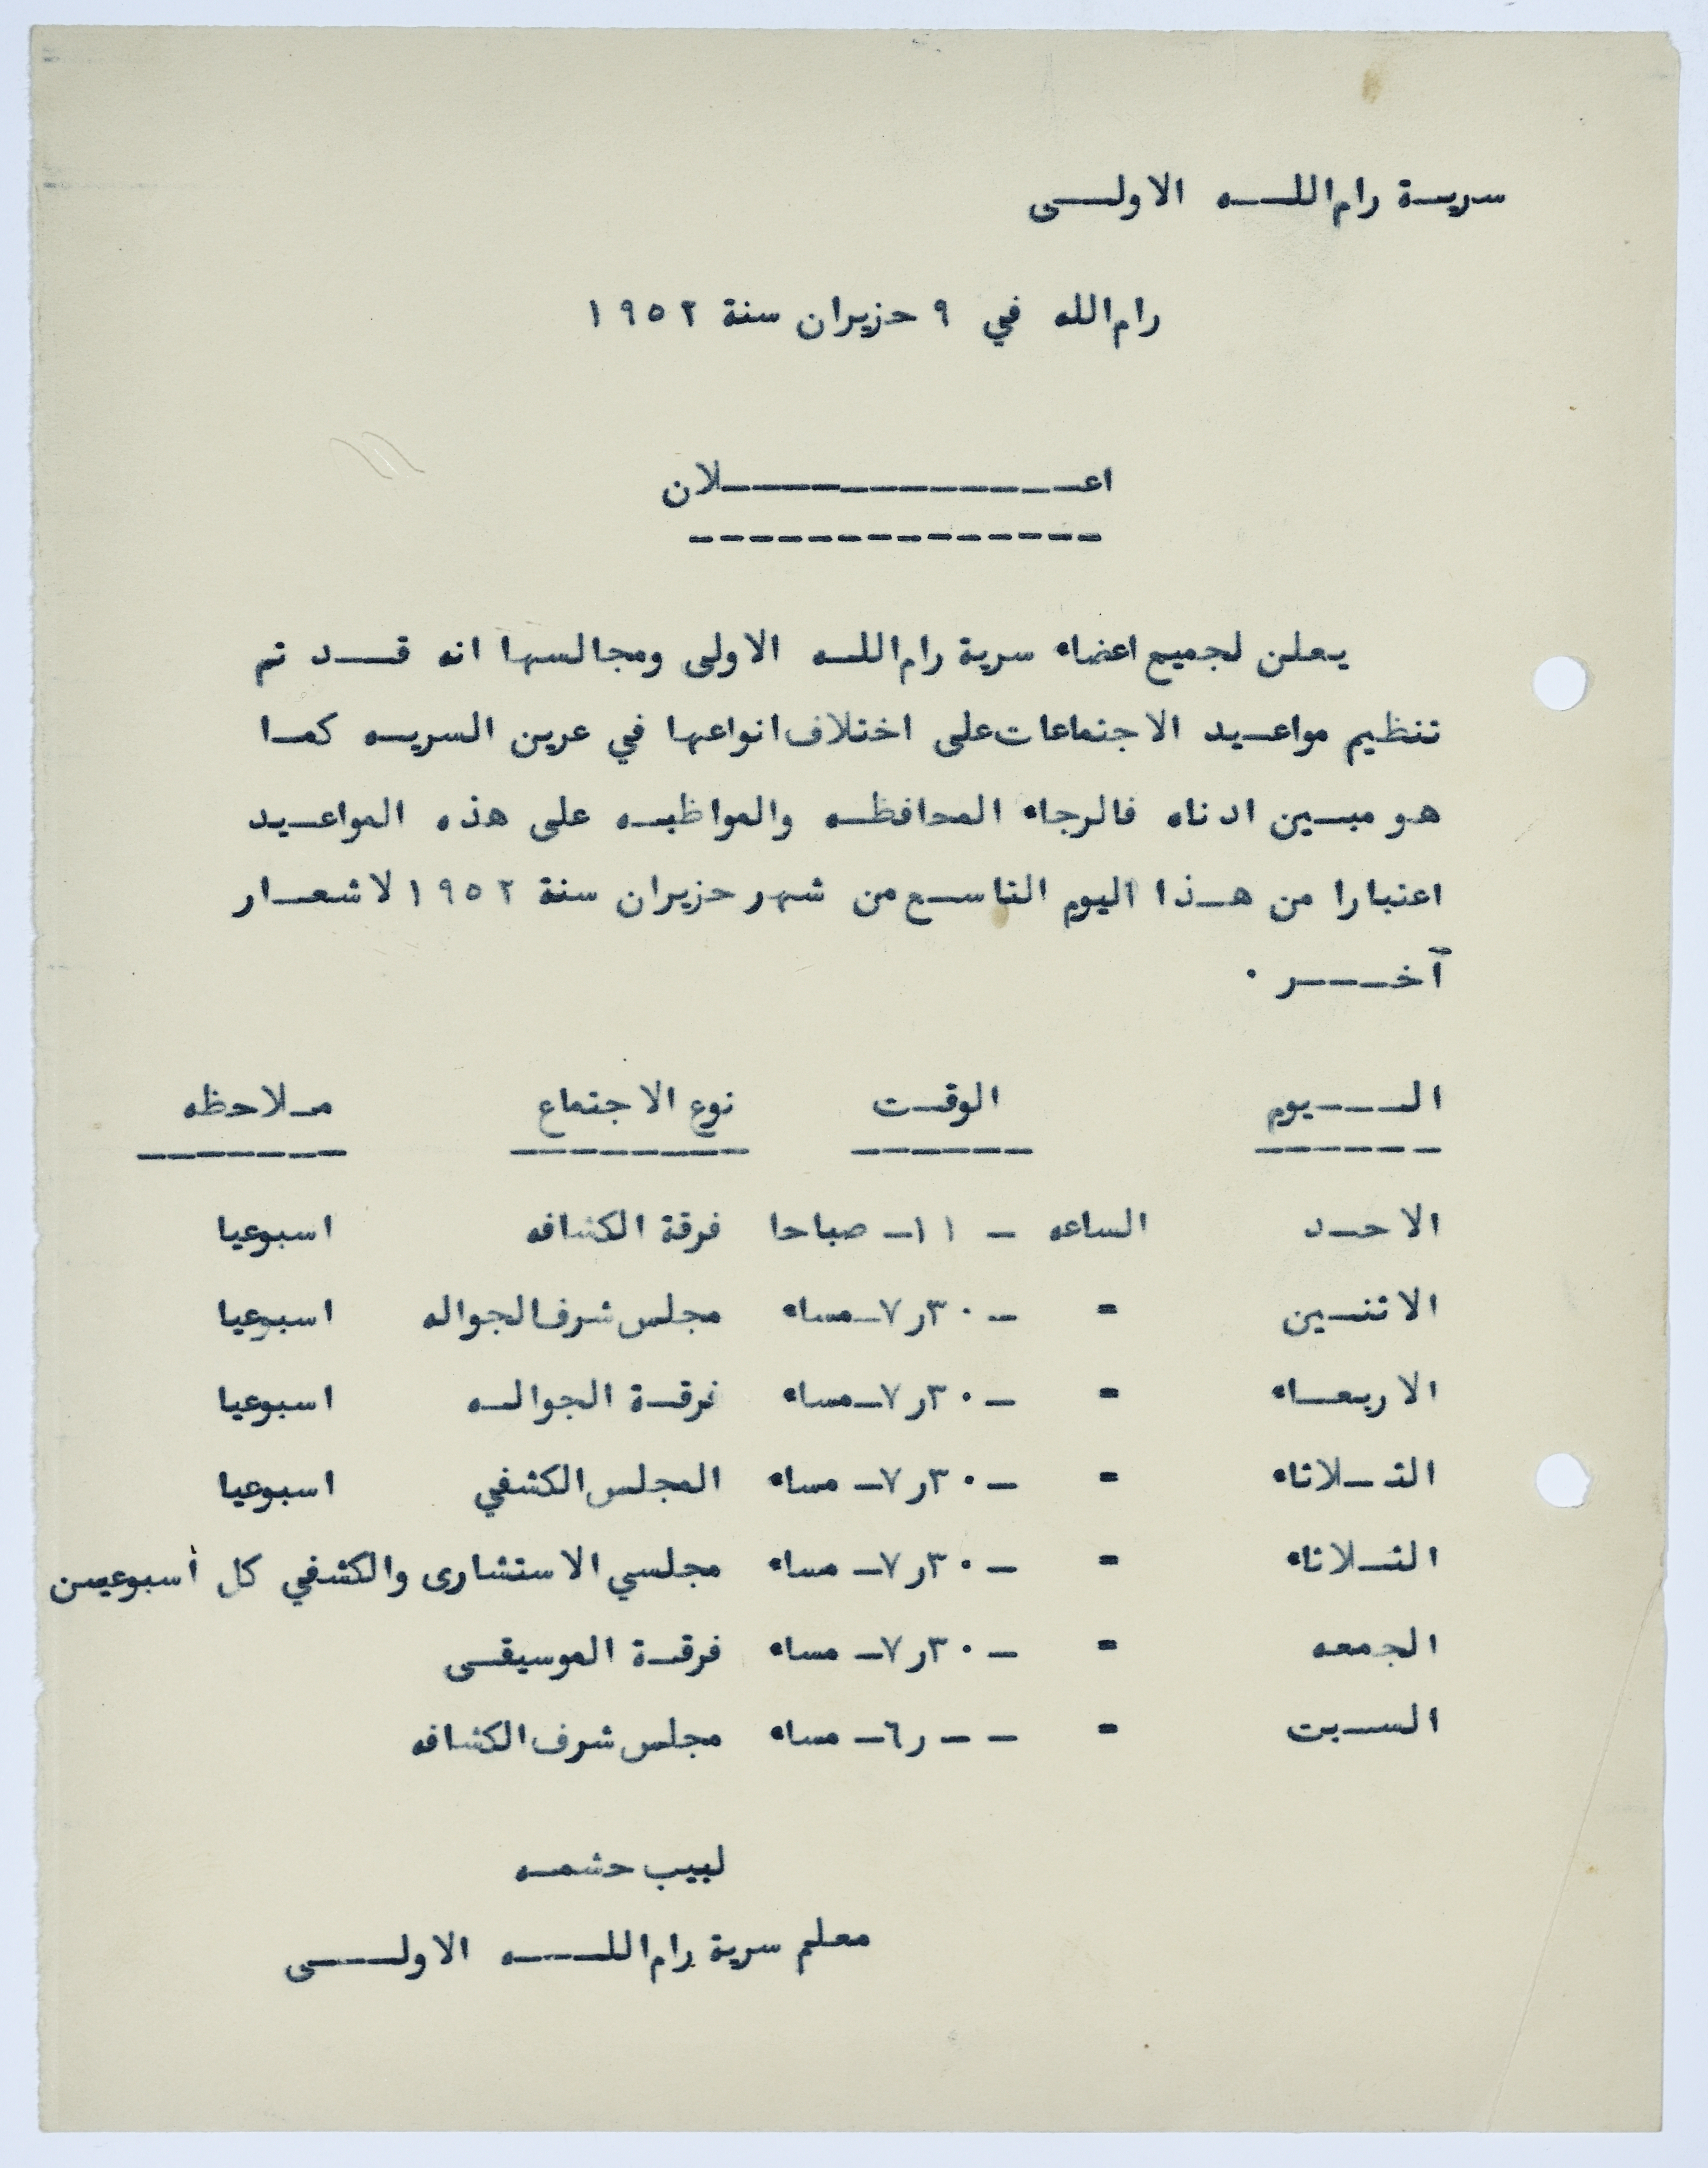 سرية رام الله الاولى
رام الله في ٩ حزيران سنة ١٩٥٢
اعلان
يعلن لجميع اعضاء سرية رام الله الاولى ومجالسها انه قد تم
تنظيم مواعيد الاجتماعات على اختلاف انواعها في عرين السريه كما
هو مبين ادناه فالرجاء المحافظه والمواظبه على هذه المواعيد
اعتبارا من هذا اليوم التاسع من شهر حزيران سنة ١٩٥٢ لاشعار
آخر .
اليوم الوقت نوع الاجتماع ملاحظه
الاحد الساعه - ١١ - صباحا فرقة الكشافه اسبوعيا
الاثنين = - ٣٠ر٧ - مساء مجلس شرف الجواله اسبوعيا
الاربعاء = - ٣٠ر٧ - مساء فرقة الجواله اسبوعيا
الثلاثاء = - ٣٠ر٧ - مساء المجلس الكشفي اسبوعيا
الثلاثاء = - ٣٠ر٧ - مساء مجلسي الاستشارى والكشفي كل أسبوعين
الجمعه = - ٣٠ر٧ - مساء فرقة الموسيقى
السبت = - - ر٦ - مساء مجلس شرف الكشافه
لبيب حشمه
معلم سرية رام الله الاولى